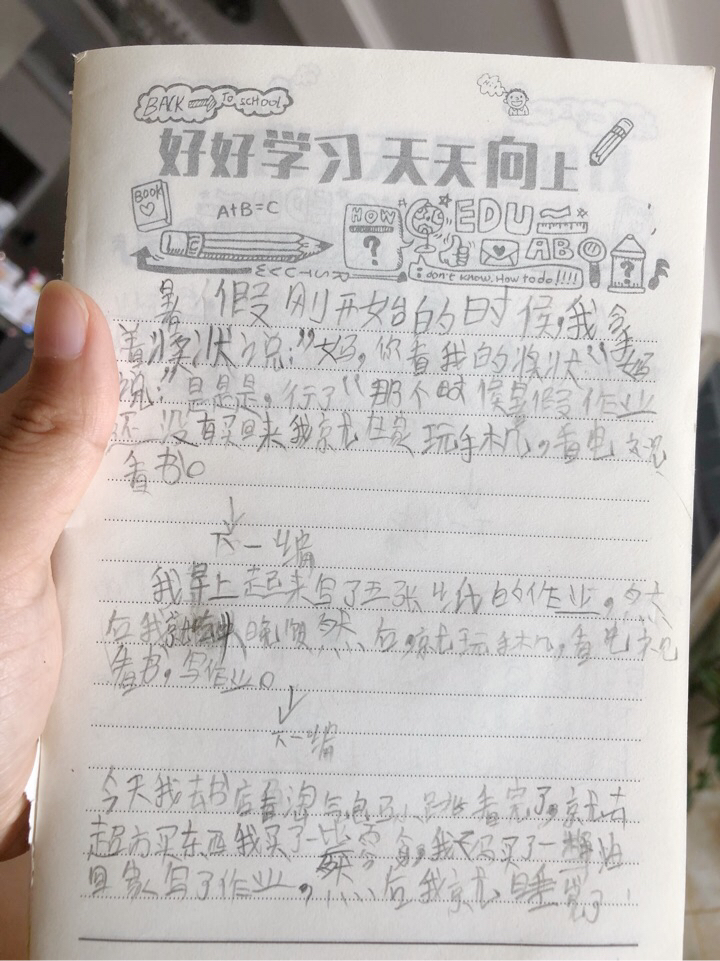 BACK TO SCHOOL
好好学习天天向上
BOOK
A+B=C
HOW
?
EDU
ABO
?
i don't know. How to do!!!!
暑假刚开始的时候,我拿
着奖状说:"妈,你看我的奖状"妈
说:"是是是,行了"那个时候暑假作业
还没有买回来我就在家玩手机,看电视
看书。
下一编
我早上起来写了五张纸的作业,然
后我就 晚饭然后,就玩手机,看电视
看书,写作业。
下一编
今天我去书店看淘气包马小跳看完了,就去
超市买东西我买了一些零食,我还买了一
回家写了作业,然后我就睡觉了